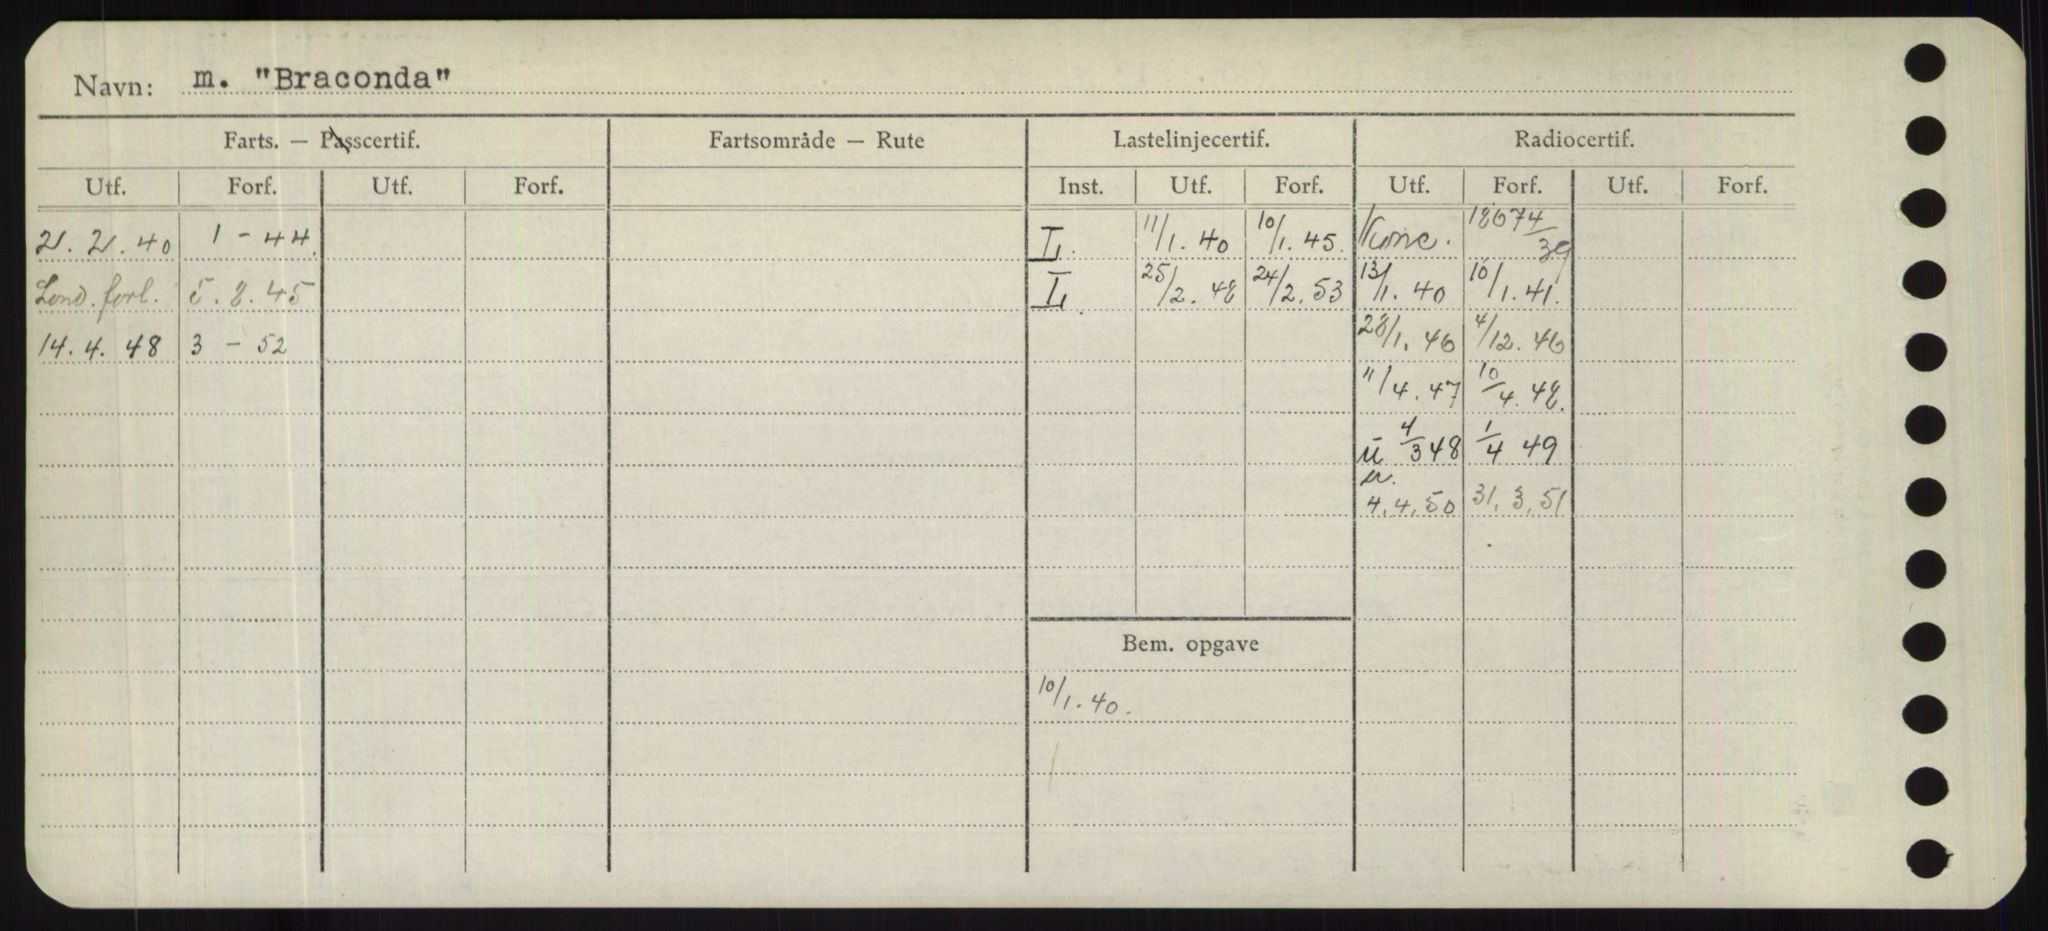 Navn: m. "Braconda"
Farts. — Passcertif. Fartsområde — Rute Lastelinjecertif. Radiocertif.
Utf. Forf. Utf. Forf. Inst. Utf. Forf. Utf. Forf. Utf. Forf.
21. 2. 40 1 - 44. L. 11/1. 40 10/1. 45. Konc. 18674/39
Lond. forl. 5. 8. 45 L. 25/2. 48 24/2. 53 13/1. 40 10/1. 41.
14. 4. 48 3 - 52 28/1. 46 4/12. 46
11/4. 47 10/4. 48.
4/3 48 1/4 49
4. 4. 50 31. 3. 51
Bem. opgave
10/1. 40.